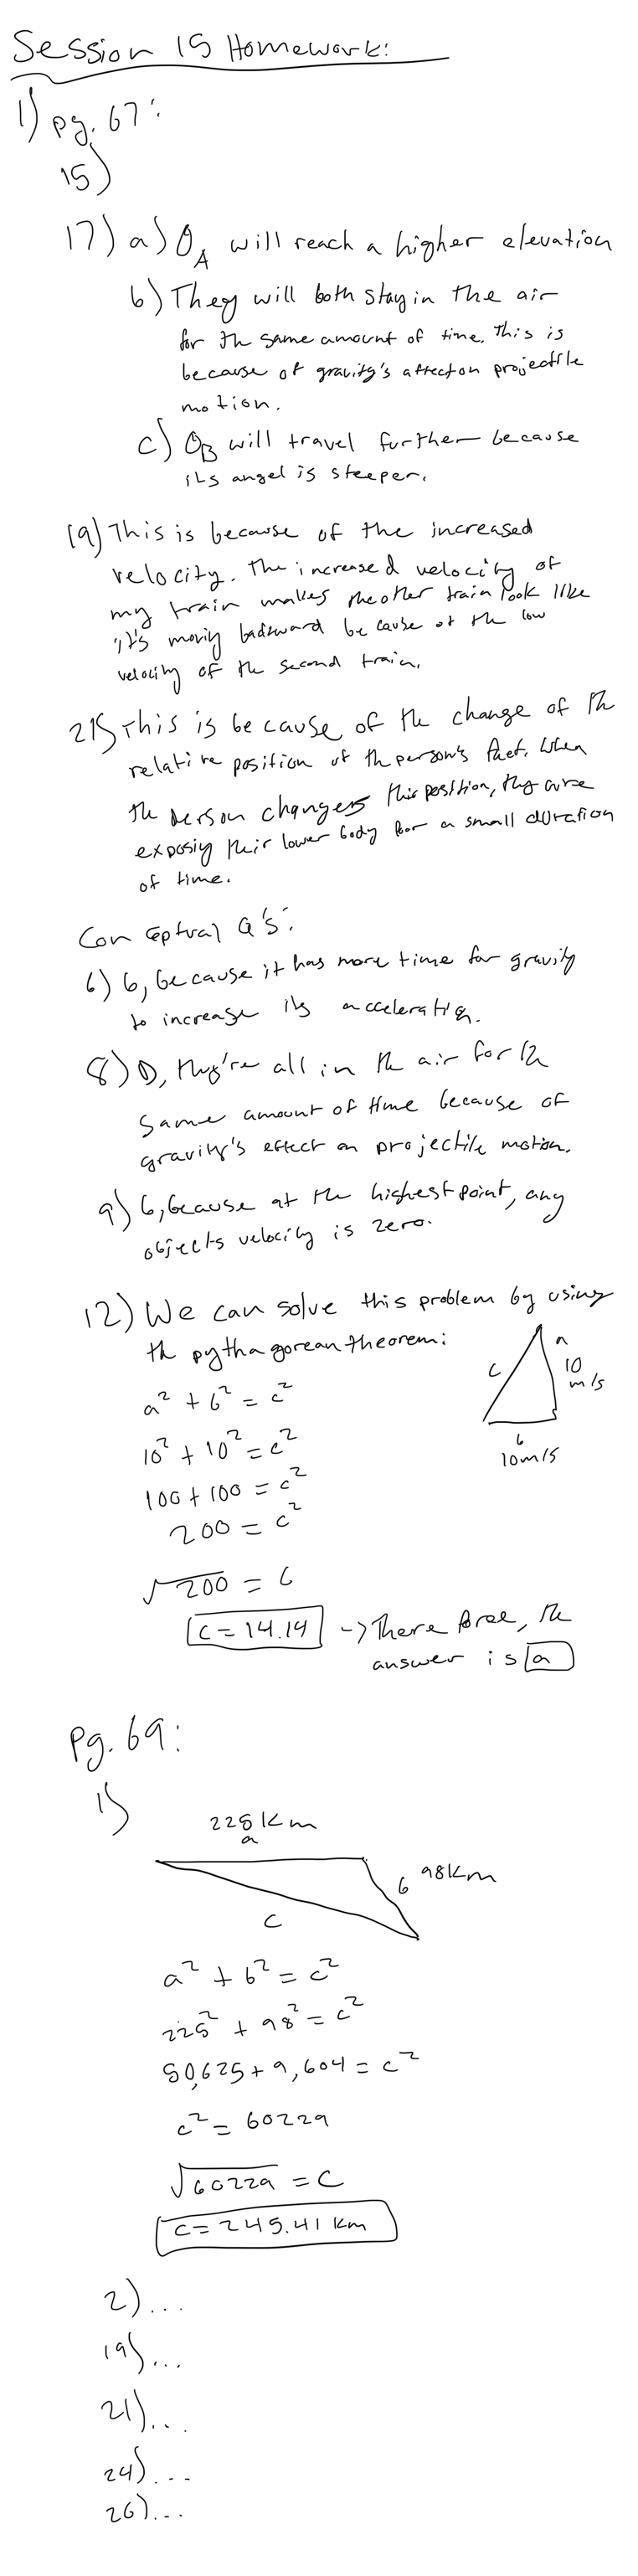 Session 15 Homework:
1) pg. 67:
15)
17) a) θA will reach a higher elevation
b) They will both stay in the air
for the same amount of time. This is
because of gravity's affect on projectile
motion.
c) θB will travel further because
its angel is steeper.
19) This is because of the increased
velocity. The increased velocity of
my train makes the other train look like
it's moving backward because of the low
velocity of the second train.
21) This is because of the change of the
relative position of the person's feet. When
the person changes this position, they are
exposing their lower body for a small duration
of time.
Conceptual Q's:
6) b, because it has more time for gravity
to increase its acceleration.
8) D, they're all in the air for the
same amount of time because of
gravity's effect on projectile motion.
9) b, because at the highest point, any
objects velocity is zero.
12) We can solve this problem by using
the pythagorean theorem:
a² + b² = c²
c
a
10
m/s
10² + 10² = c²
b
10m/s
100 + 100 = c²
200 = c²
√200 = c
c = 14.14 -> Therefore, the
answer is a
Pg. 69:
1)
225 km
a
b 98km
c
a² + b² = c²
225² + 98² = c²
50,625 + 9,604 = c²
c² = 60229
√60229 = c
c = 245.41 km
2)...
19)...
21)...
24)...
26)...